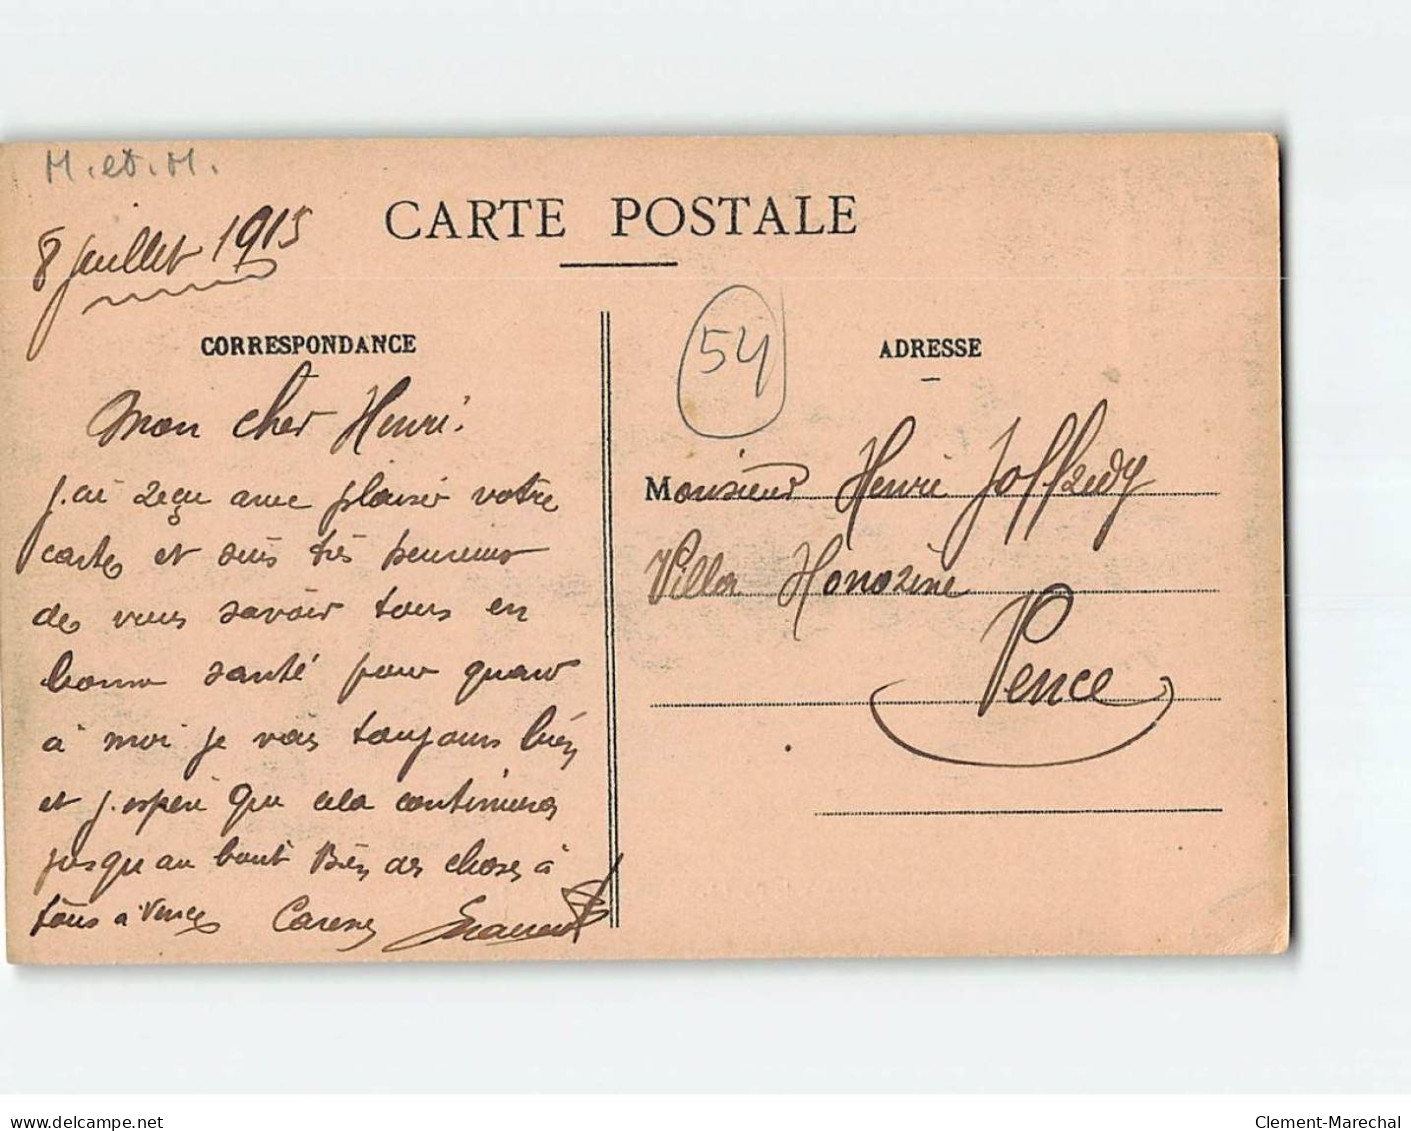 M. et. M.
8 juillet 1915
CARTE POSTALE
CORRESPONDANCE
54
ADRESSE
Mon cher Henri.
j.ai reçu avec plaisir votre
carte et suis très heureux
de vous savoir tous en
bonne santé pour quant
à moi je vais toujours bien
et j.espère que cela continuera
jusqu'au bout Bien des choses à
tous à Vence
Monsieur Henri Joffredy
Villa Honorine
Vence
www.delcampe.net
Clement-Marechal